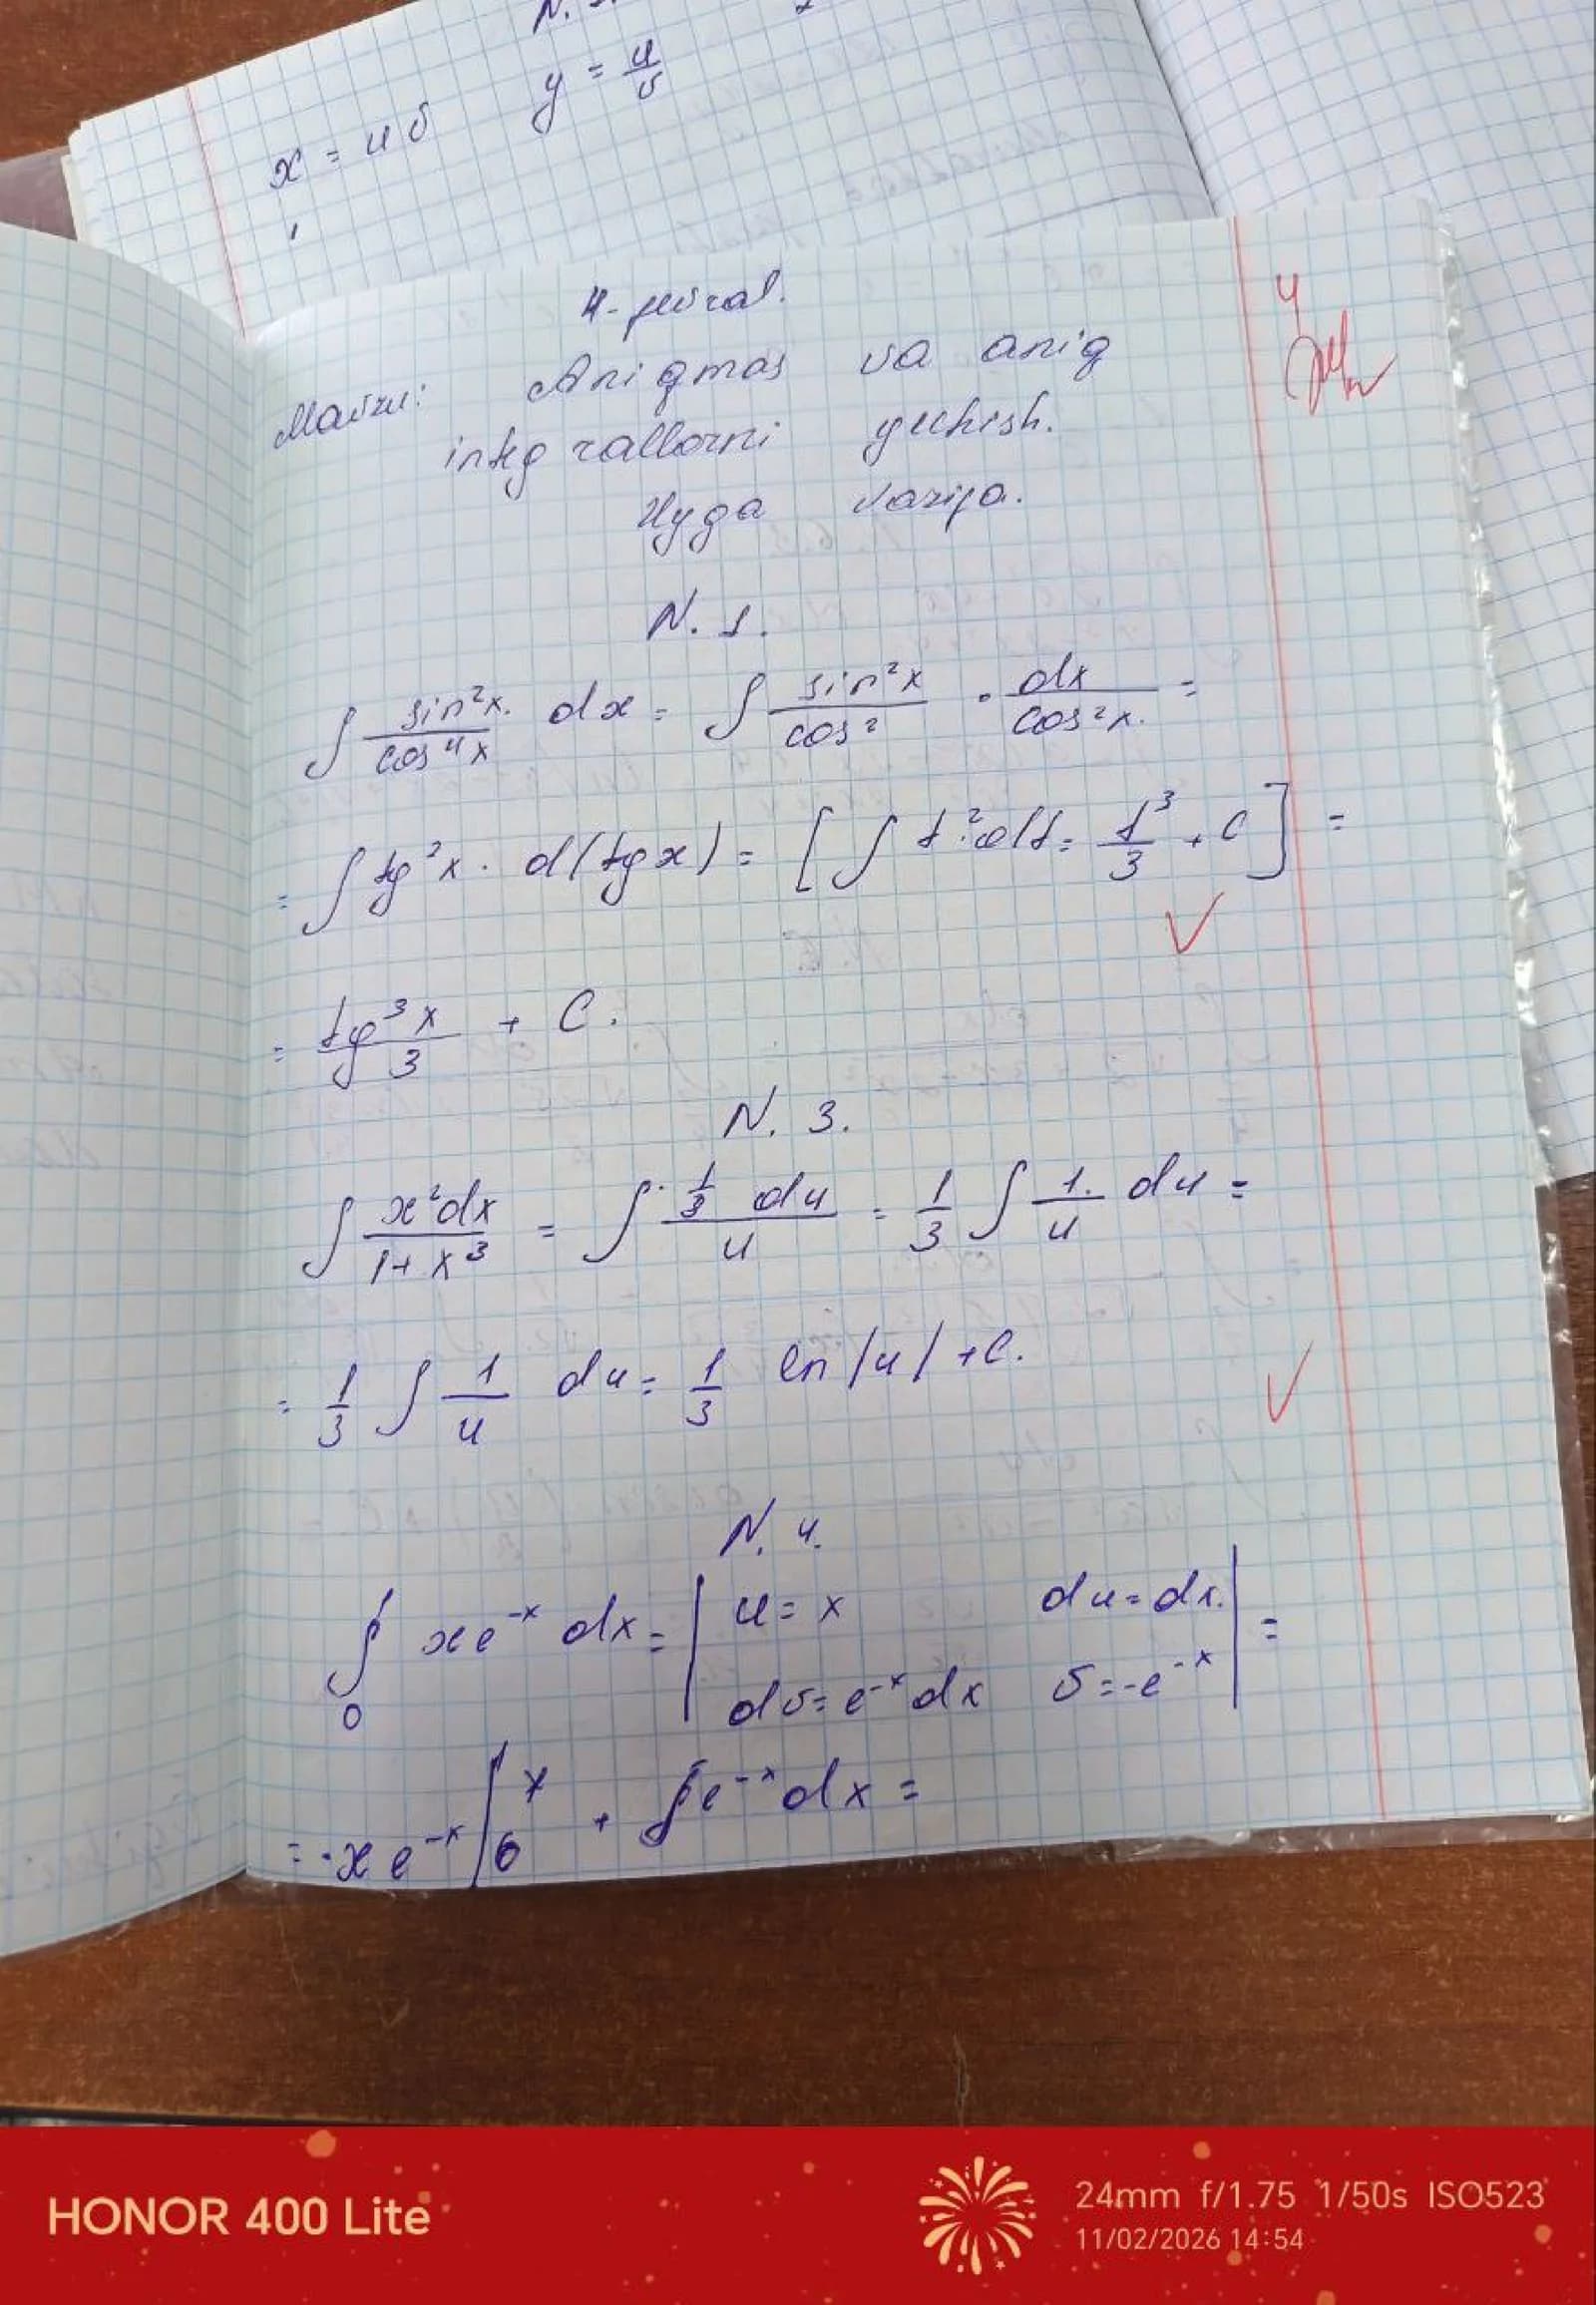 x = uv y = u/v
4-fevral.
Mavzu: Aniqmas va aniq
integrallarni yechish.
Uyga vazifa.
4
N. 1.
∫ sin²x/cos⁴x dx = ∫ sin²x/cos² · dx/cos²x =
= ∫ tg²x · d(tgx) = [∫ t²·dt = t³/3 + C] =
= tg³x/3 + C.
N. 3.
∫ x²dx/1+x³ = ∫ 1/3 du/u = 1/3 ∫ 1/u du =
= 1/3 ∫ 1/u du = 1/3 ln|u| + C.
N. 4.
∫₀¹ xe⁻ˣ dx = | u = x du = dx. | =
dv = e⁻ˣdx v = -e⁻ˣ
= -xe⁻ˣ |₀¹ + ∫e⁻ˣdx =
HONOR 400 Lite
24mm f/1.75 1/50s ISO523
11/02/2026 14:54